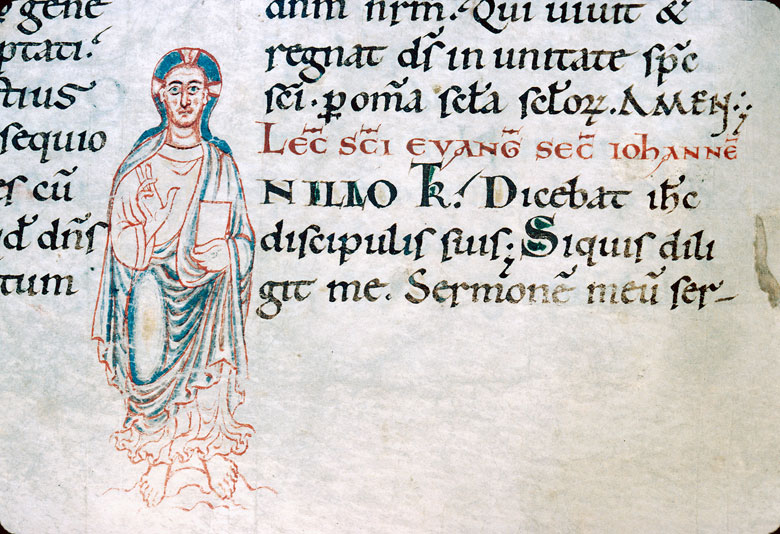 gene
ptati.
stius
sequio
es cũ
dñs
tum
dñm nrm̃. Qui uiuit &
regnat dš in unitate sp̃c
sc̃i. ꝑ om̃a sc̃la sc̃loꝝ. AMEN:
Lec̃ sc̃i evang̃ sec̃ iohannẽ
NILLO Tk̃. Dicebat ih̃c
discipulis suis; Siquis dili
git me. Sermonẽ meũ ser-